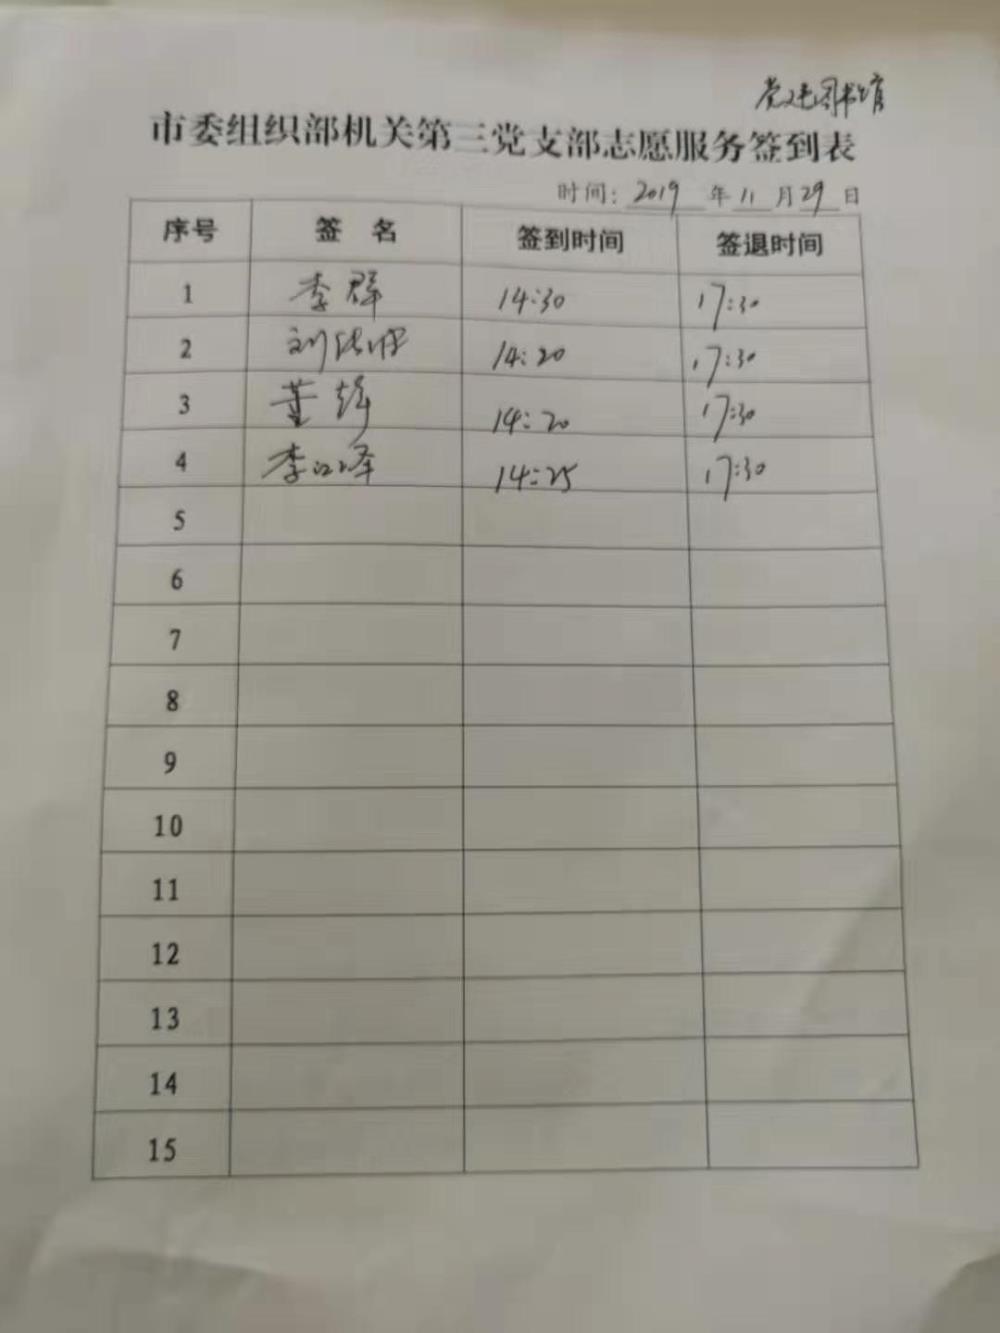 党建图书馆
市委组织部机关第三党支部志愿服务签到表
时间：2019年11月29日
序号 签 名 签到时间 签退时间
1 李群 14:30 17:30
2 刘 14:20 17:30
3 董 14:20 17:30
4 李 14:25 17:30
5
6
7
8
9
10
11
12
13
14
15